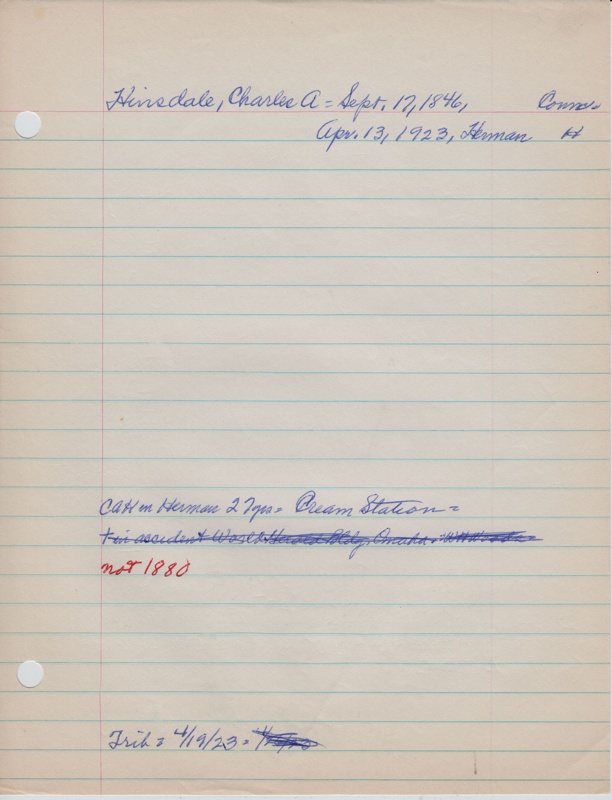 Hinsdale, Charles A = Sept. 17, 1846, Conn =
Apr. 13, 1923, Herman H
CAH in Herman 27 yrs = Cream Station =
+ in accident World Herald Bldg, Omaha =
not 1880
Trib = 4/19/23 =